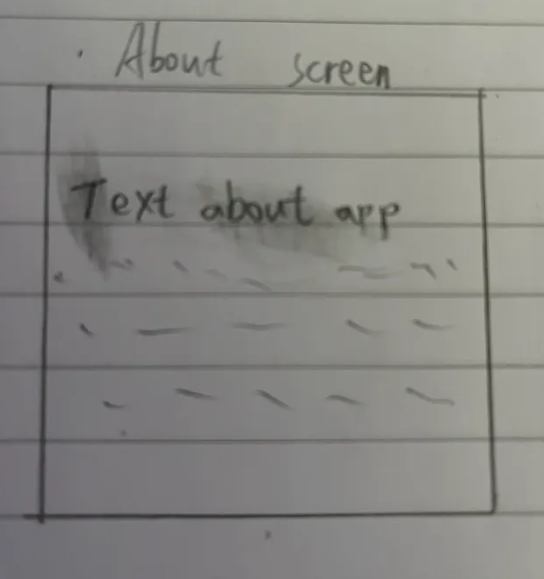 About screen
Text about app